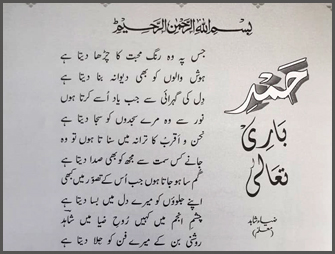 بسم اللہ الرحمن الرحیم
حمد
باری
تعالیٰ
ضیاء شاہد
(معلم)
جس پہ وہ رنگ محبت کا چڑھا دیتا ہے
ہوش والوں کو بھی دیوانہ بنا دیتا ہے
دل کی گہرائی سے جب یاد اُسے کرتا ہوں
نور سے وہ مرے سجدوں کو سجا دیتا ہے
نحن و اقرب کا ترانہ میں سناتا ہوں تو وہ
جانے کس سمت سے مجھ کو بھی صدا دیتا ہے
گم سا ہو جاتا ہوں جب اُس کے تصور میں کبھی
اپنے جلوؤں کو میرے دل میں بسا دیتا ہے
چشمِ انجم میں کہیں روحِ ضیا میں شاہد
روشنی بن کے میرے فن کو جلا دیتا ہے